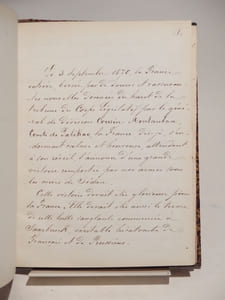 1.
Le 3 Septembre 1870, la France
entière bercée par de vaines et
les nouvelles données du haut de la
tribune du Corps législatif par le géné-
ral de division Cousin Montauban
Comte de Palikao, la France dis-je, s'en-
dormait calme et heureuse, attendant
à son réveil l'annonce d'une grande
victoire remportée par nos armes sous
les murs de Sedan.
Cette victoire devait être glorieuse pour
la France, Elle devait être aussi le terme
de cette lutte sanglante commencée à
Saarbruck, véritable hécatombe de
Français et de Prussiens.